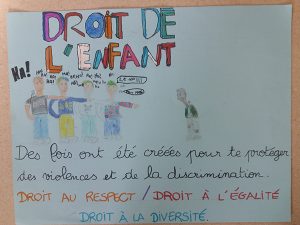 DROIT DE
L'ENFANT
HA!
Des lois ont été créées pour te protéger
des violences et de la discrimination.
DROIT AU RESPECT / DROIT À L'ÉGALITÉ
DROIT À LA DIVERSITÉ.